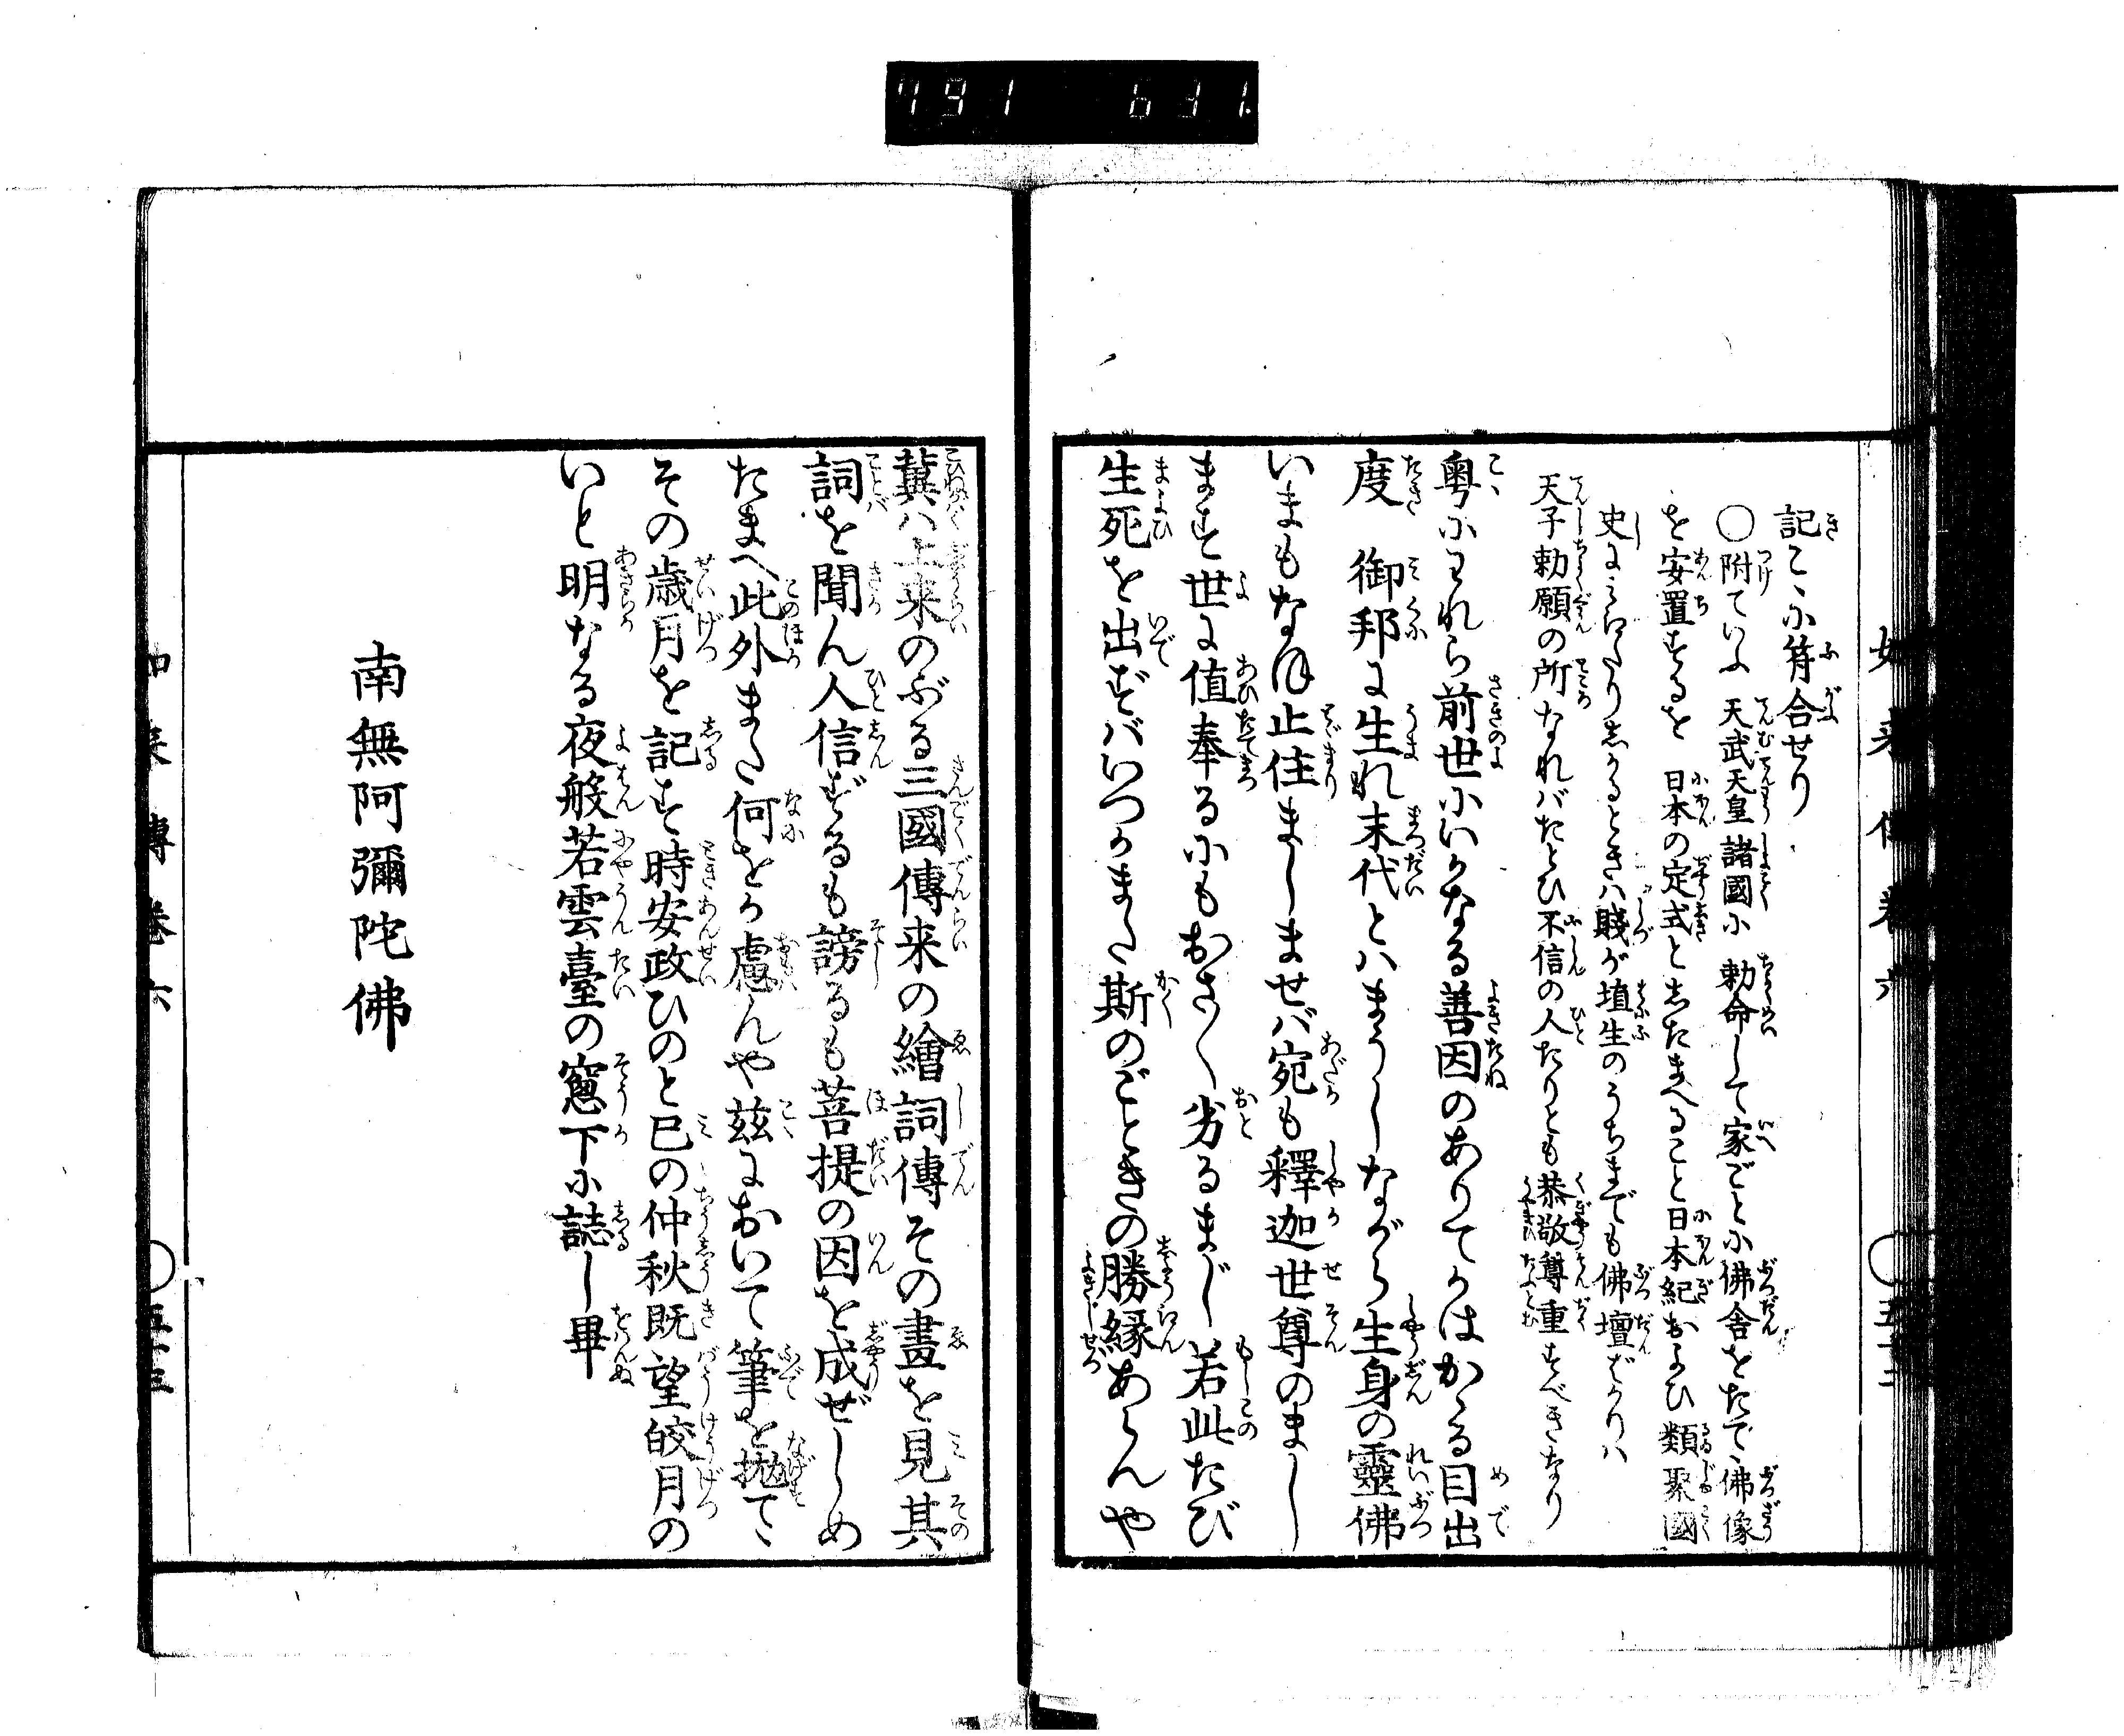 791 631
記こゝに符合せり
〇附ていふ 天武天皇諸國に 勅命して家ごとに佛舎をたて佛像
を安置するを 日本の定式としたまへること日本紀および類聚國
史に見えたりしかるときハ賤が埴生のうちまでも佛壇ばかりハ
天子勅願の所なれバたとひ不信の人たりとも恭敬尊重すべきなり
粤にわれら前世にいかなる善因のありてかはかゝる目出
度 御邦に生れ末代とハまうしながら生身の靈佛
いまもなほ止住ましませバ宛も釋迦世尊のまし
ます世に値奉るにもおさ〱劣るまじ若此たび
生死を出ずバいつかまた斯のごときの勝縁あらんや
如来傳巻六 五十二
冀ハ上来のぶる三國傳来の繪詞傳その畫を見其
詞を聞ん人信ずるも謗るも菩提の因を成ぜしめ
たまへ此外また何をか慮んや茲において筆を抛て
その歳月を記す時安政ひのと巳の仲秋既望皎月の
いと明なる夜般若雲臺の窓下に誌し畢
南無阿彌陀佛
如来傳巻六 五十三